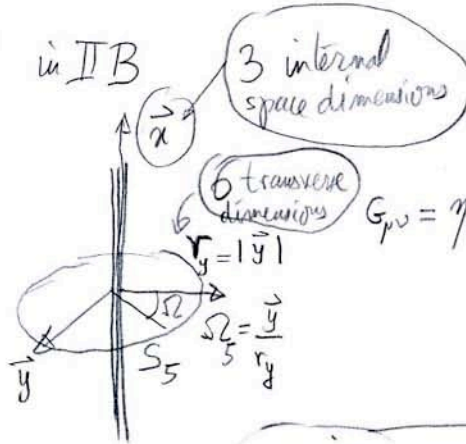 in IIB
3 internal
space dimensions
x⃗
6 transverse
dimensions
r_y = |y⃗|
G_μν = η
Ω
Ω_5 = y⃗/r_y
S_5
y⃗